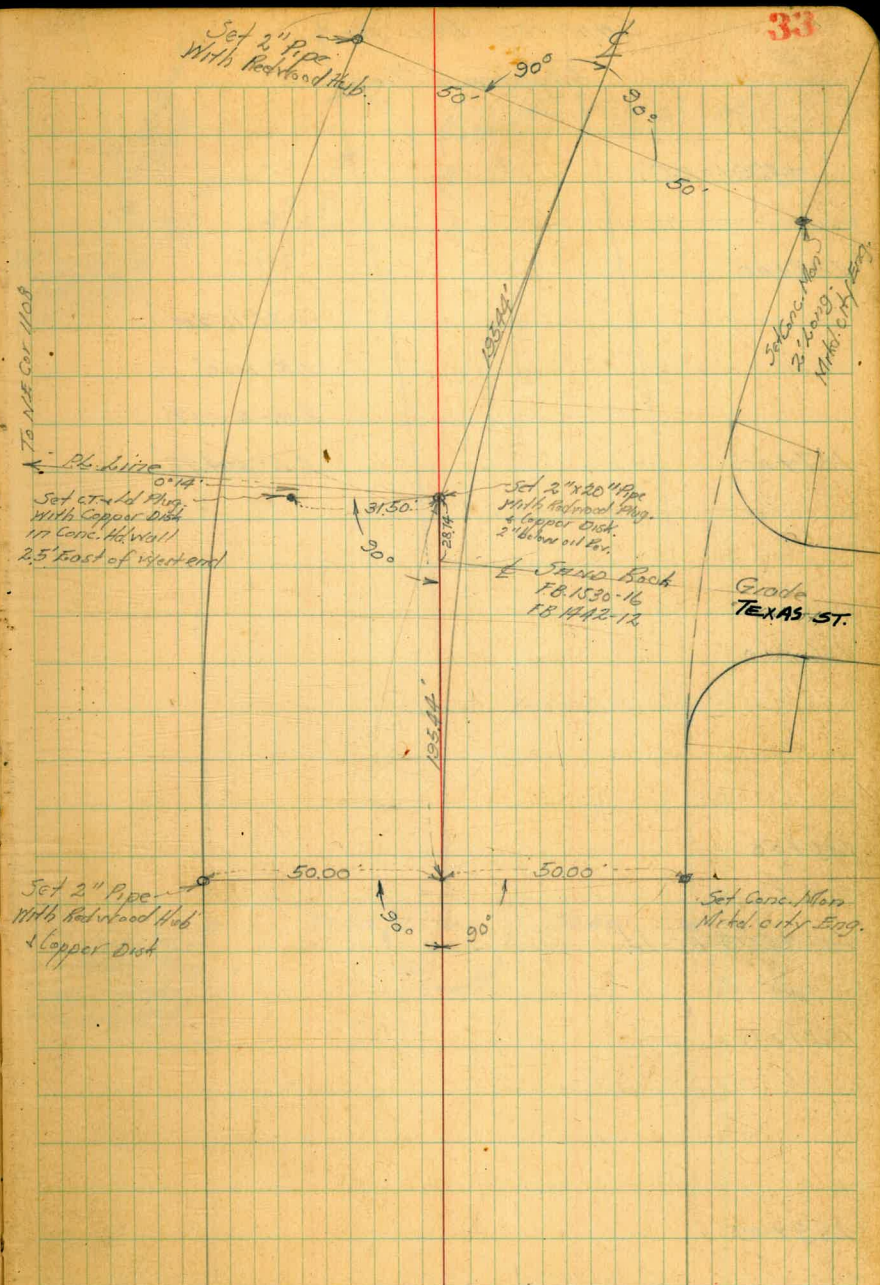 33
Set 2" Pipe
With Redwood Hub.
90°
50'
90°
50'
Set Conc. Mon
2' Long.
Mrkd. City Eng.
195.44'
To N.E. Cor. 1108
Line
0°14'
Set
With Copper Disk
in Conc. Hd. Wall
2.5' East of West end
31.50'
90°
28.14
Set 2" x 20" Pipe
With Redwood Plug.
& Copper Disk.
2" below oil
Rock
F.B. 1530-16
F.B. 1442-12
Grade
TEXAS ST.
195.44'
50.00'
50.00'
Set 2" Pipe
With Redwood Hub
& Copper Disk
90°
90°
Set Conc. Mon
Mrkd. City Eng.